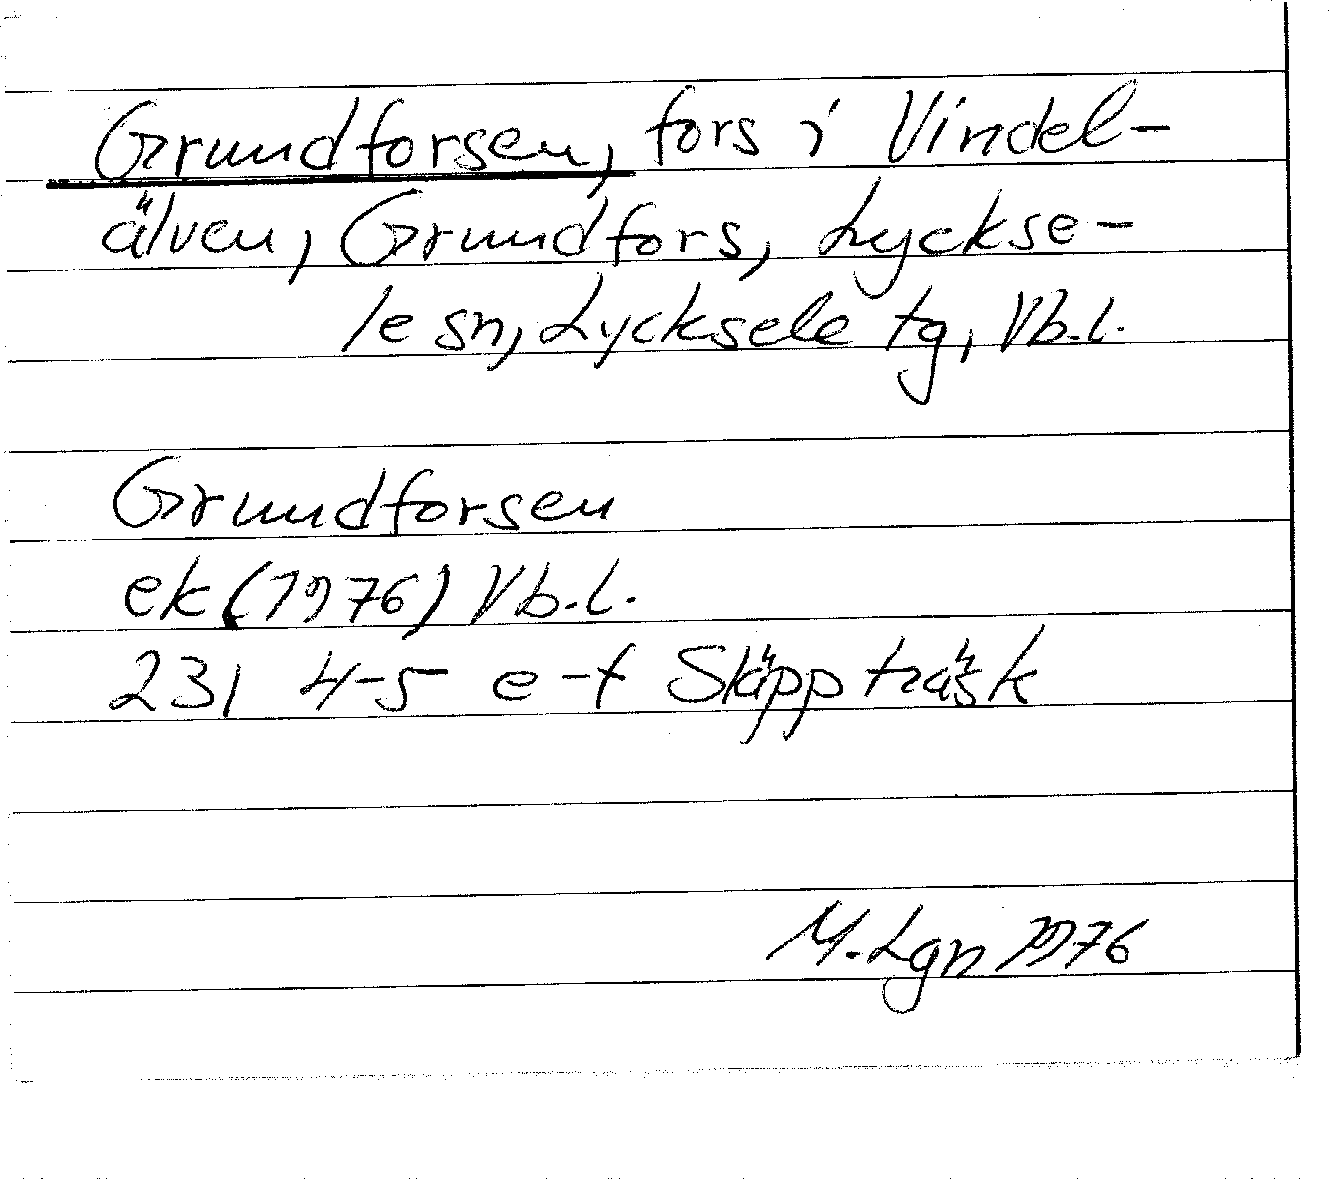 Grundforsen, fors i Vindel-
älven, Grundfors, Lyckse-
le sn, Lycksele tg, Vb.l.
Grundforsen
ek (1976) Vb.l.
231 4-5 e-f Släppträsk
M.Lgn 1976